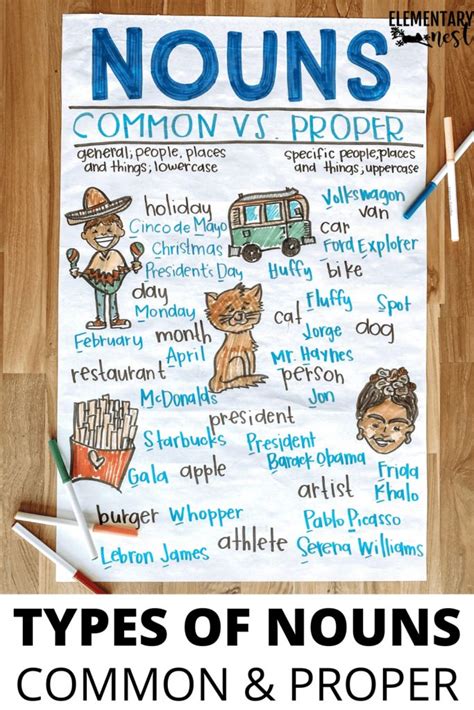 ELEMENTARY
nest
NOUNS
COMMON VS. PROPER
general; people, places
and things; lowercase
specific people, places
and things; uppercase
holiday
Cinco de Mayo
Christmas
President's Day
day
Monday
February month
April
restaurant
McDonalds
Volkswagon
van
car
Ford Explorer
Huffy bike
Fluffy Spot
cat
Jorge dog
Mr. Haynes
person
Jon
president
Starbucks President
Barack Obama
Gala apple
Frida
Khalo
artist
burger Whopper
Pablo Picasso
Lebron James athlete Serena Williams
TYPES OF NOUNS
COMMON & PROPER